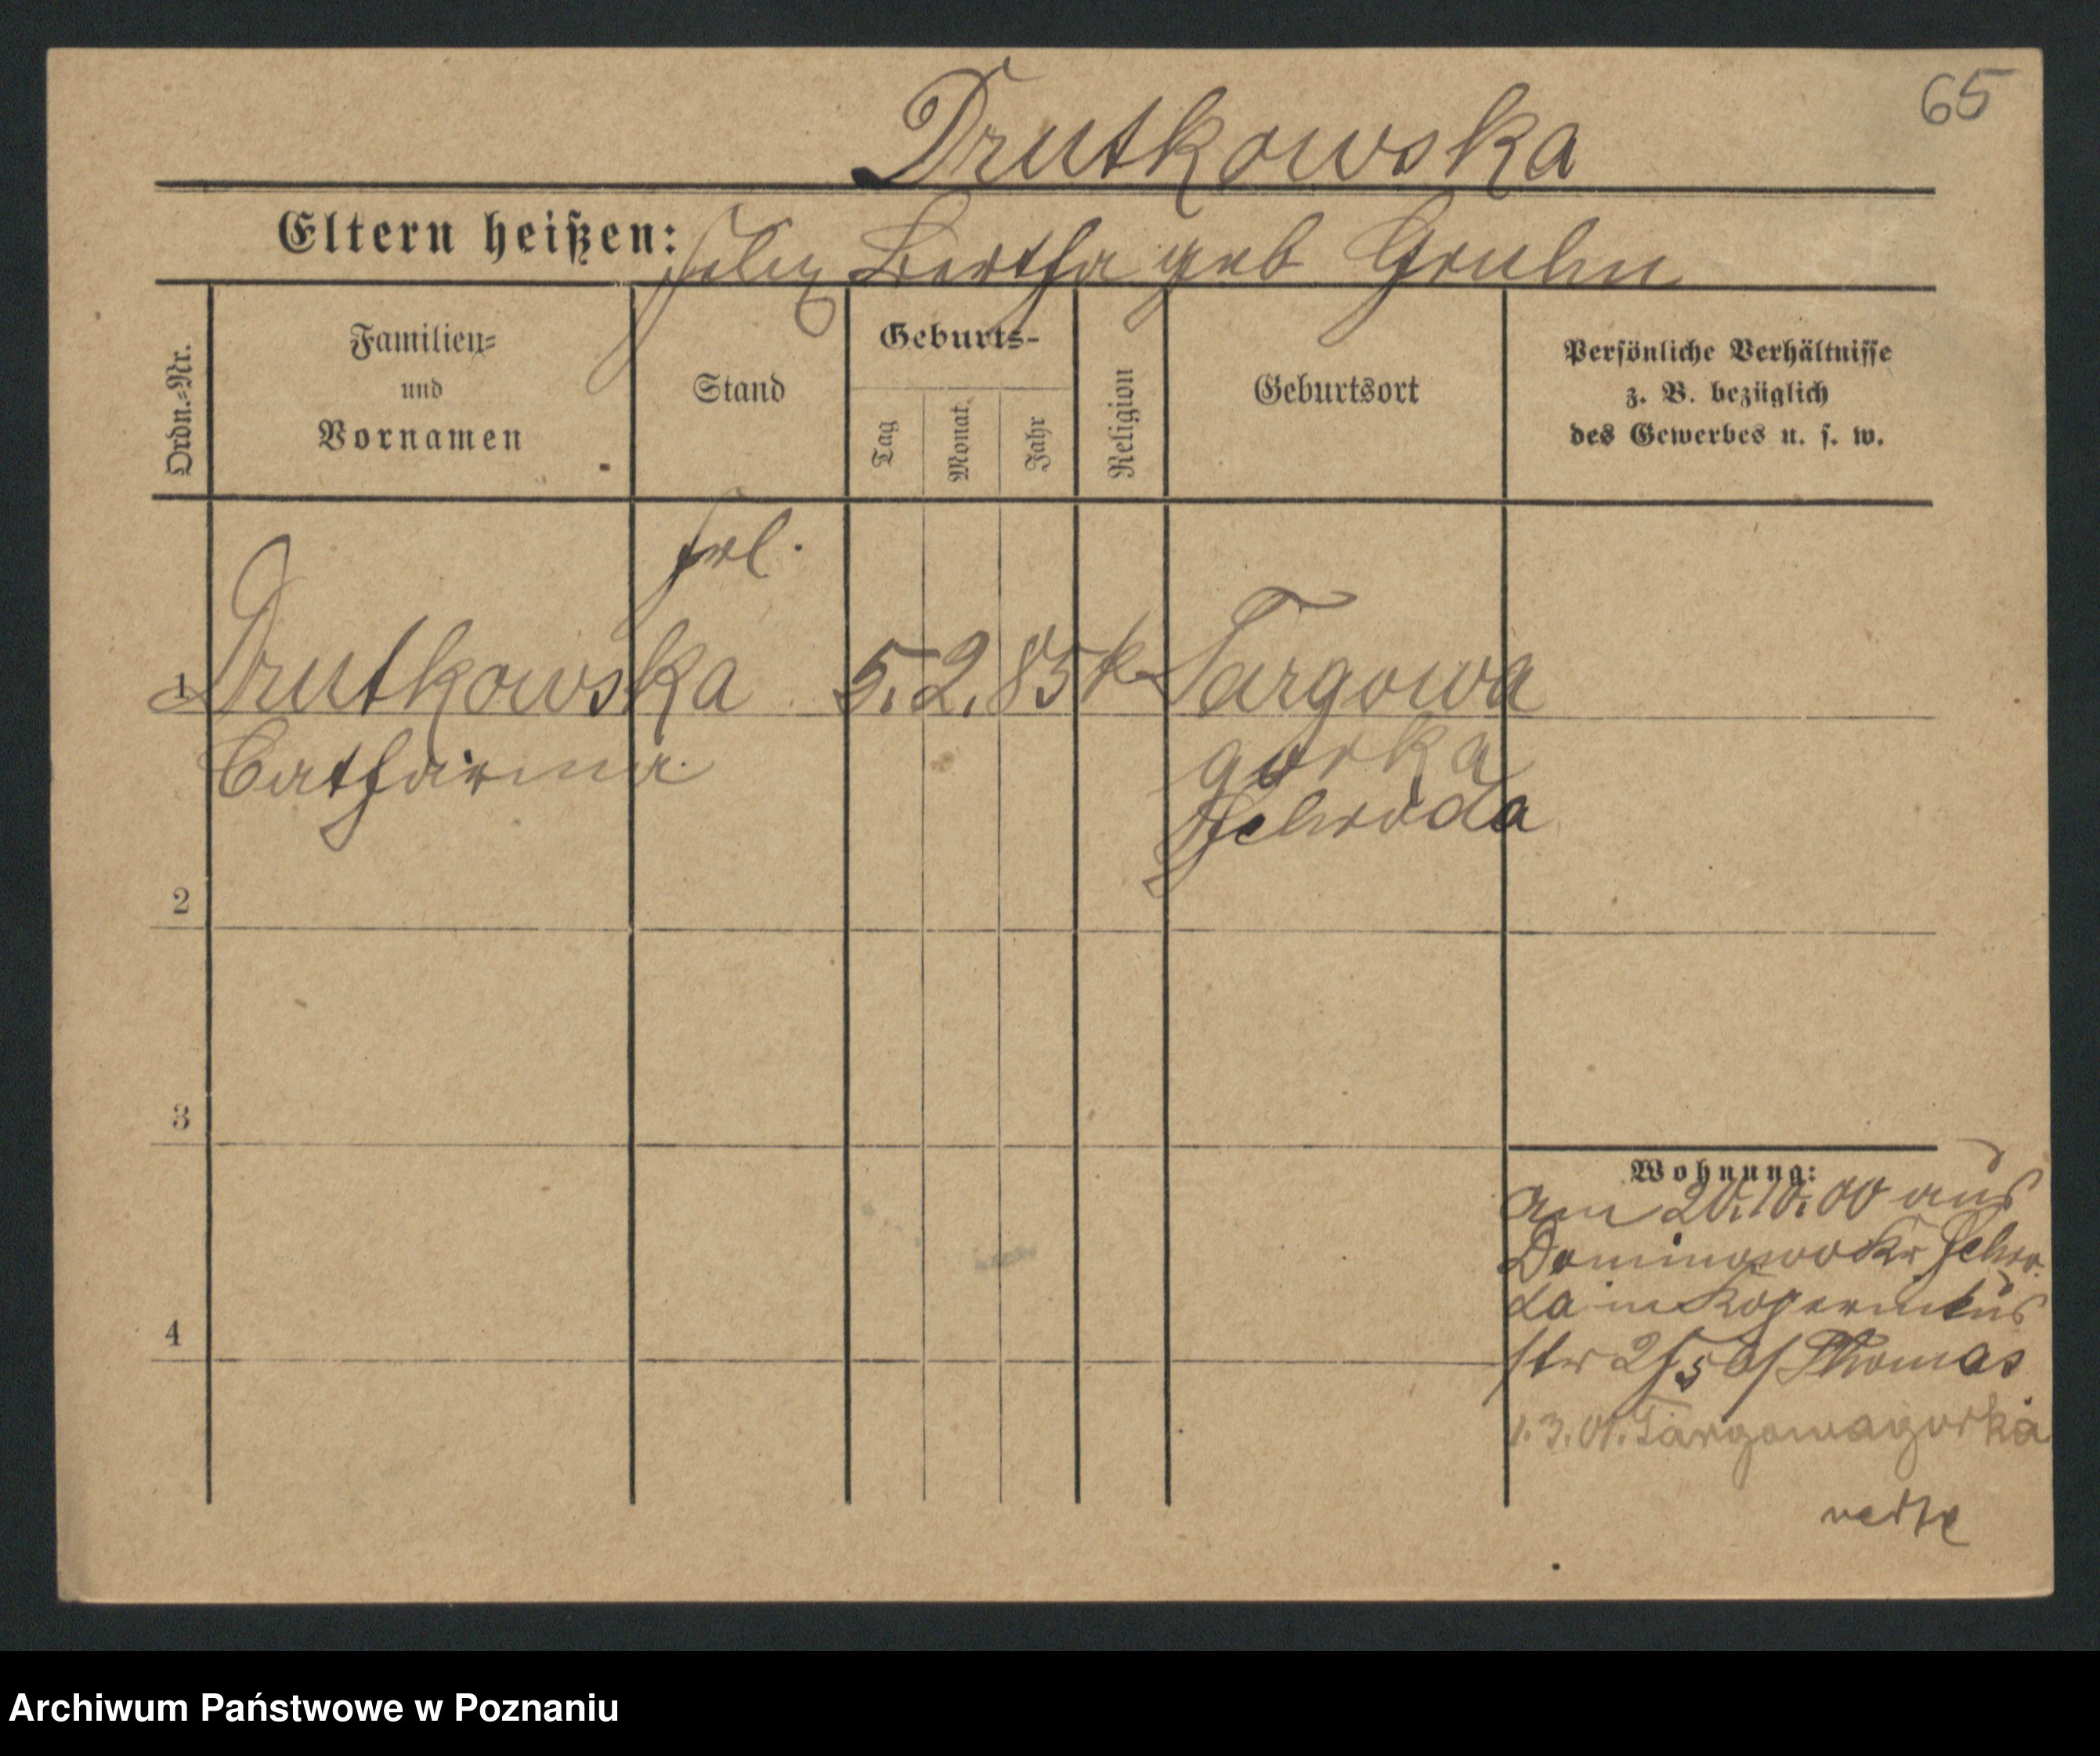 65
Drutkowska
Eltern heißen: Felix Bertha geb Gruhn
Ordn.-Nr.
Familien-
und
Vornamen
Stand
Geburts-
Tag
Monat
Jahr
Religion
Geburtsort
Persönliche Verhältnisse
z. B. bezüglich
des Gewerbes u. s. w.
frl.
1 Drutkowska 5. 2. 85 k Targowa
Catharina gorka
Schroda
2
3
4
Wohnung:
am 20.10.00 aus
Dominowo Kr Schro-
da in Kopernikus
str
Thomas
1.3.01. Targowagorka
Archiwum Państwowe w Poznaniu